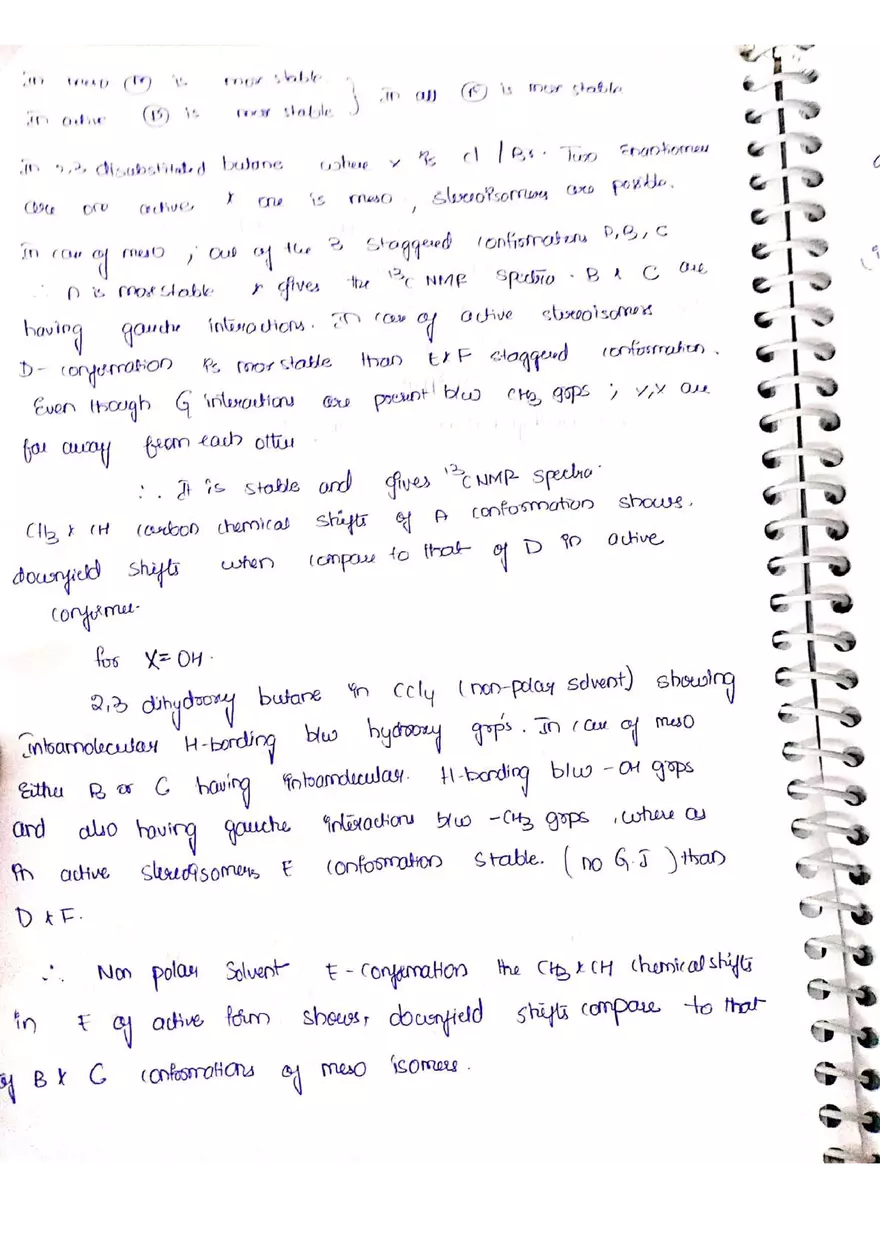 In meso (A) is more stable } in all (A) is more stable
In active (D) is more stable
In 2,3 disubstituted butane where x is cl / Br. Two Enantiomers
are active & one is meso, stereoisomers are posible.
In case of meso ; out of the 3 staggered confirmations A, B, C
∴ A is more stable & gives the ¹³C NMR spectra. B & C are
having gauche interactions. In case of active stereoisomers
D- conformation is more stable than E & F staggered conformation.
Even though G interactions are present b/w CH3 gops ; x,x are
far away from each other
∴ It is stable and gives ¹³C NMR spectra.
CH3 & CH carbon chemical shifts of A conformation shows.
downfield shifts when compare to that of D in active
conformer.
for X=OH.
2,3 dihydroxy butane in CCl4 (non-polar solvent) showing
Intramolecular H-bording b/w hydroxy grp's. In case of meso
Either B or C having intramolecular. H-bonding b/w -OH grops
and also having gauche interactions b/w -CH3 gops, where as
in active stereoisomers E conformation stable. (no G.I) than
D & F.
∴ Non polar Solvent E-Conformation the CH3 & CH chemical shifts
in E of active form shows, downfield shifts compare to that
of B & C conformations of meso isomers.